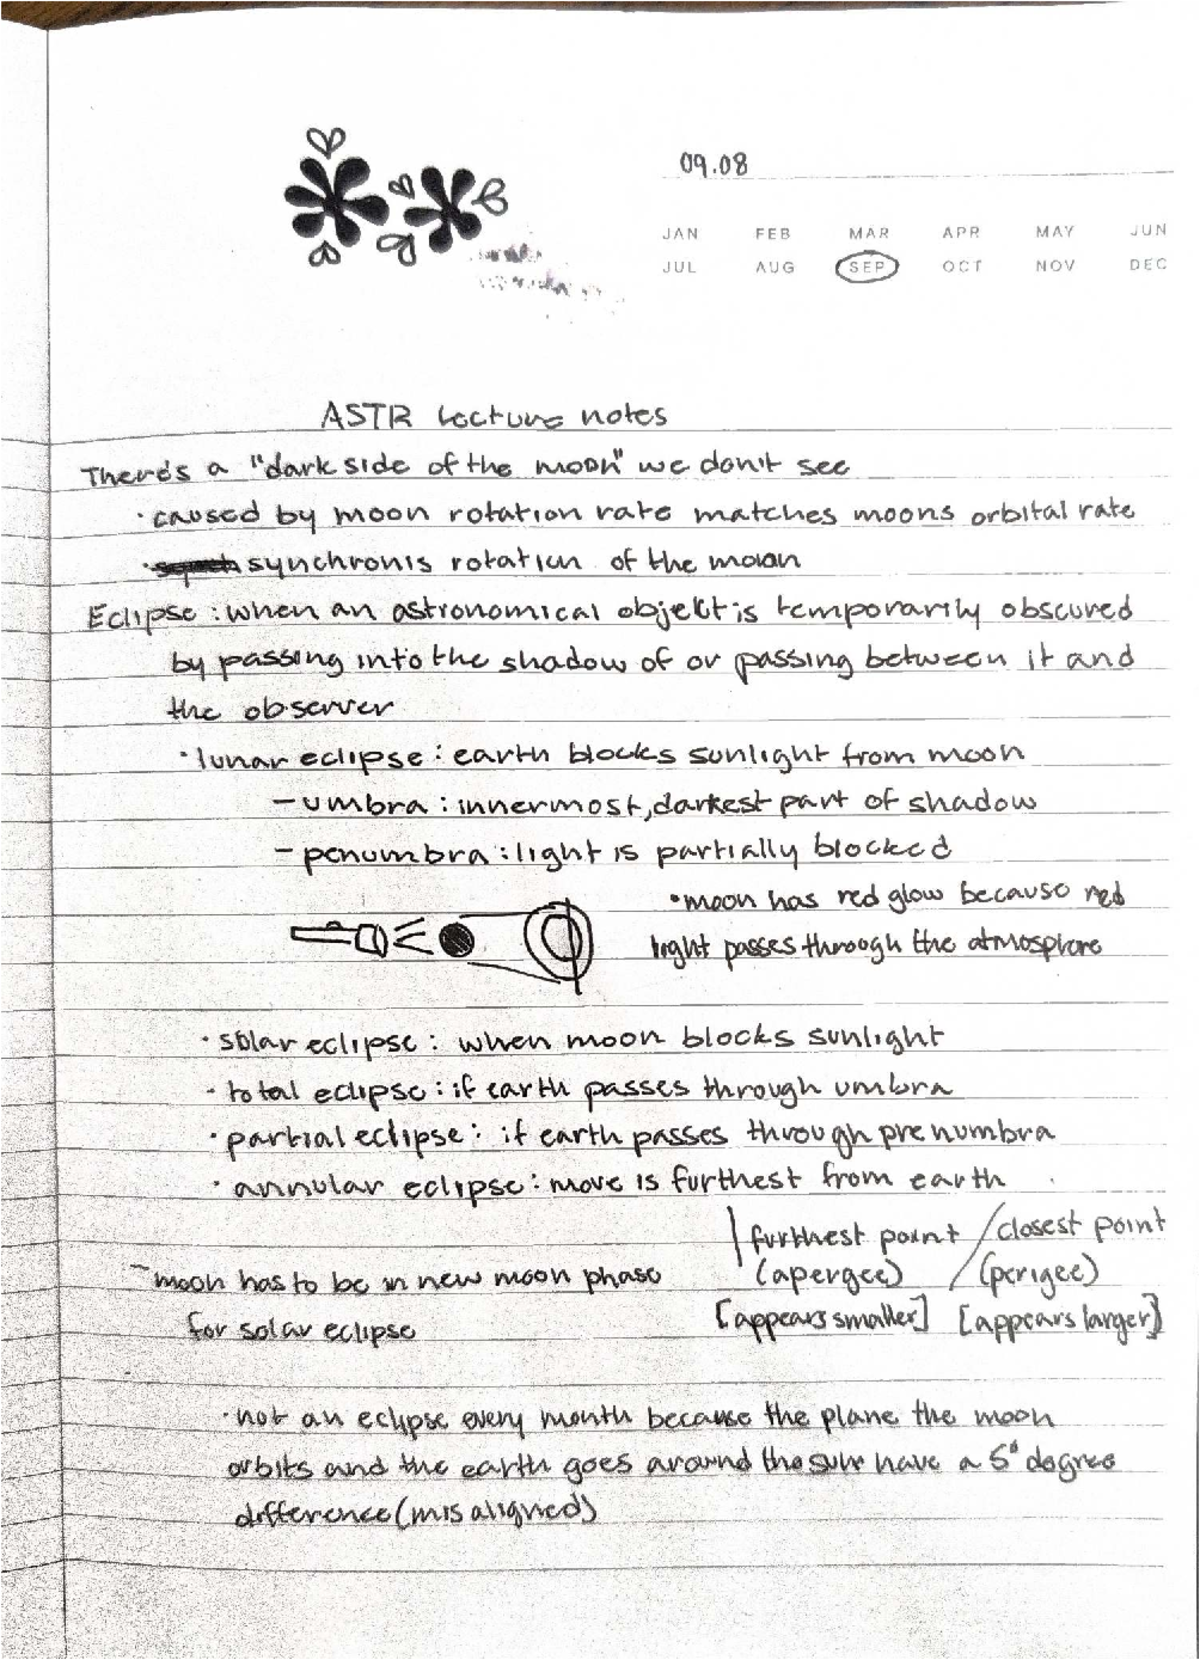 09.08
JAN FEB MAR APR MAY JUN
JUL AUG SEP OCT NOV DEC
ASTR Lecture notes
There's a "dark side of the moon" we don't see
·caused by moon rotation rate matches moons orbital rate
·synchronis rotation of the moon
Eclipse: when an astronomical objekt is temporarily obscured
by passing into the shadow of or passing between it and
the observer
·lunar eclipse: earth blocks sunlight from moon
-umbra: innermost, darkest part of shadow
-penumbra: light is partially blocked
·moon has red glow because red
light passes through the atmosphere
·solar eclipse: when moon blocks sunlight
·total eclipse: if earth passes through umbra
·partial eclipse: if earth passes through prenumbra
·annular eclipse: move is furthest from earth
furthest point / closest point
(apergee) / (perigee)
[appears smaller] [appears larger]
-moon has to be in new moon phase
for solar eclipse
·not an eclipse every month because the plane the moon
orbits and the earth goes around the sun have a 5° degree
difference (misaligned)